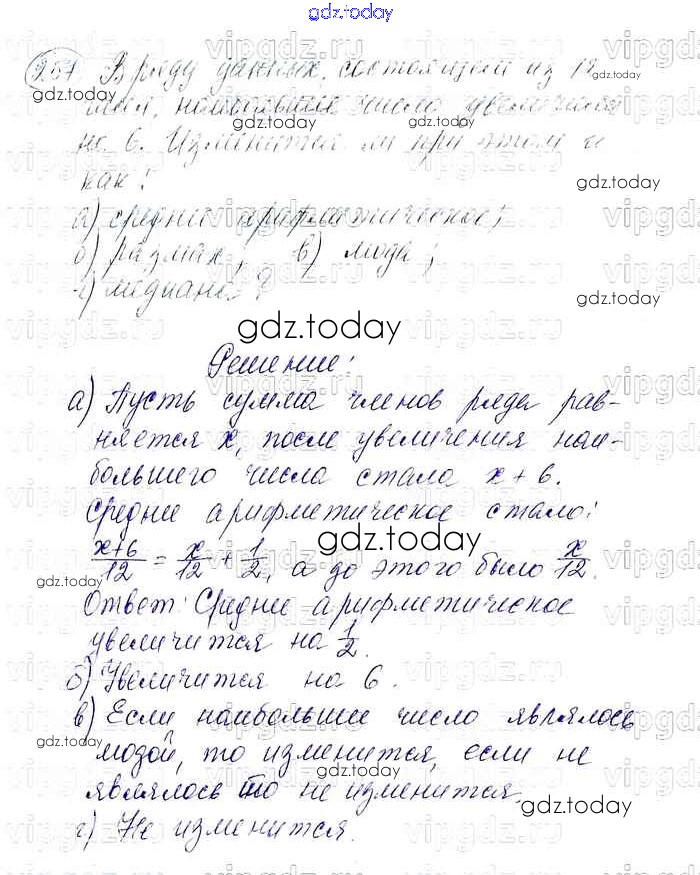 gdz.today
257 В ряду данных, состоящем из 12
чисел, наибольшее число увеличили
на 6. Изменится ли при этом и
как:
а) среднее арифметическое;
б) размах; в) мода;
г) медиана?
Решение:
а) Пусть сумма членов ряда рав-
няется x, после увеличения наи-
большего числа стала x + 6.
Среднее арифметическое стало:
x+6/12 = x/12 + 1/2, а до этого было x/12.
Ответ: Среднее арифметическое
увеличится на 1/2.
б) Увеличится на 6.
в) Если наибольшее число являлось
модой, то изменится, если не
являлось то не изменится.
г) Не изменится.